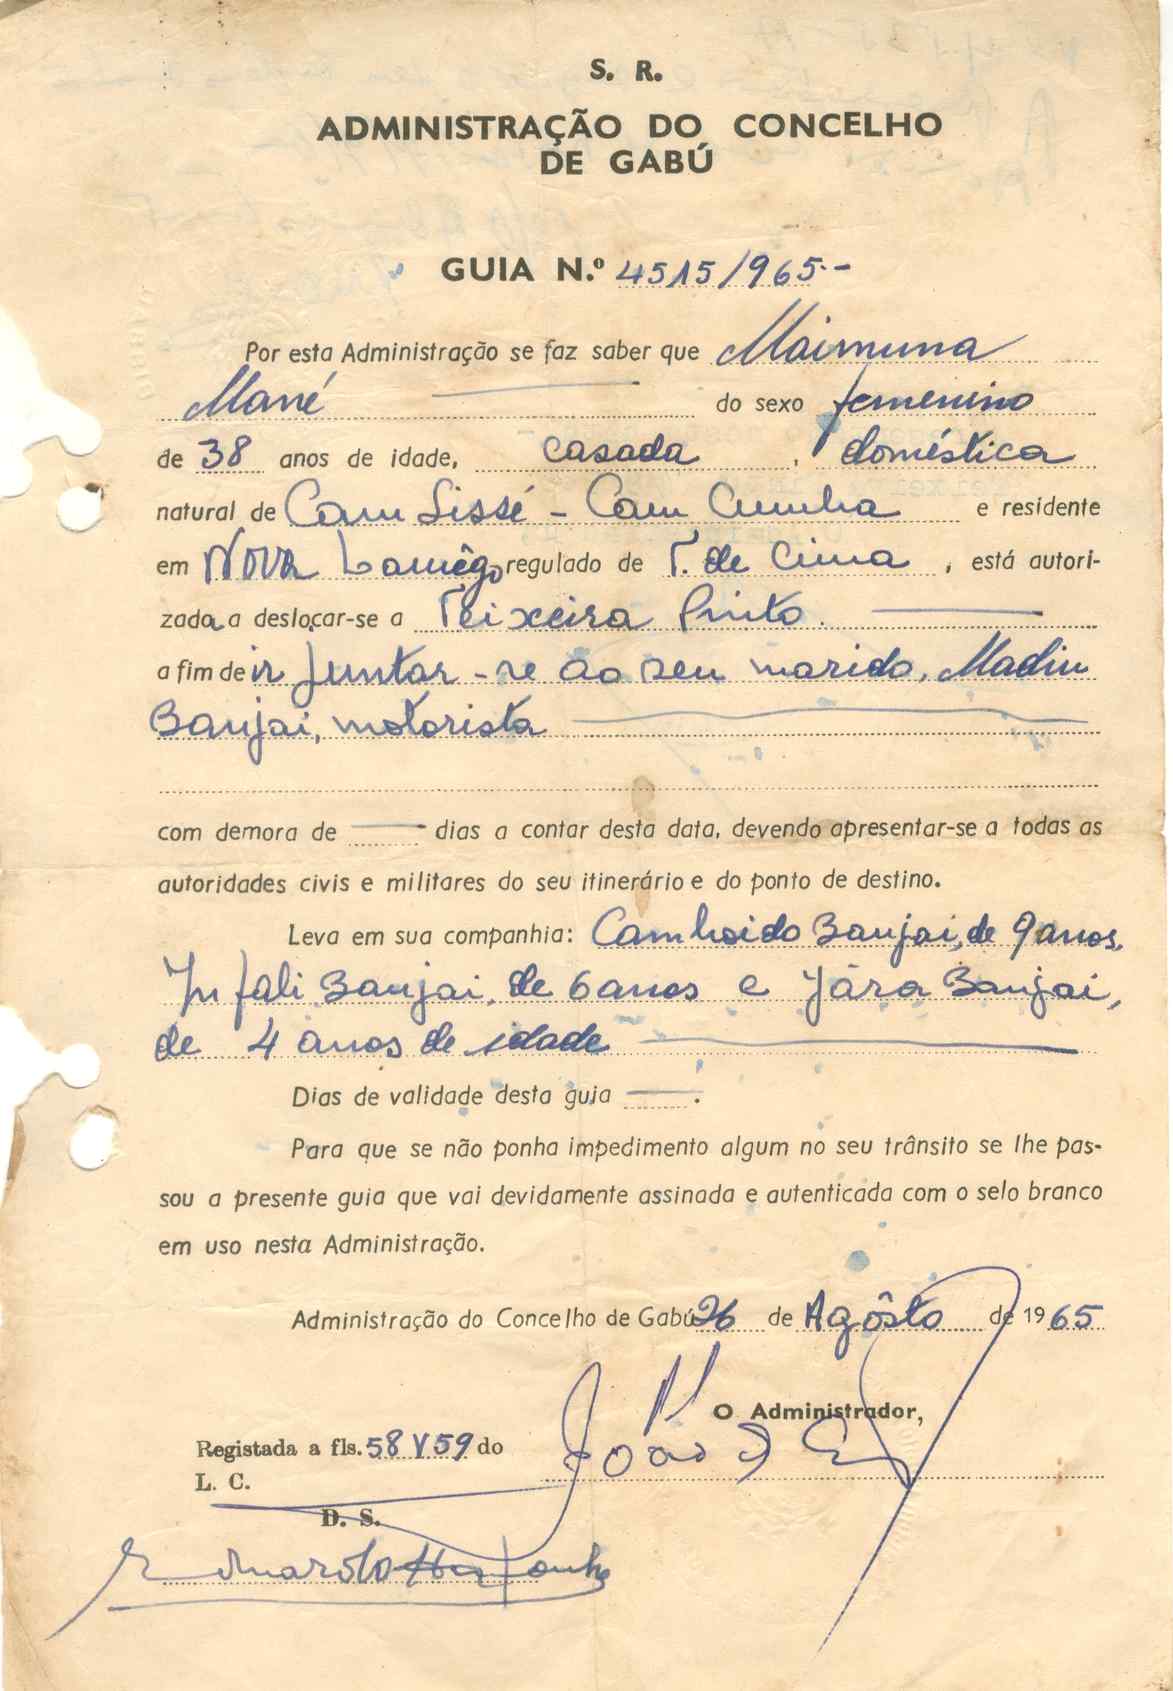 S. R.
ADMINISTRAÇÃO DO CONCELHO
DE GABÚ
GUIA N.º 4515/965.-
Por esta Administração se faz saber que Maimuna
Mané do sexo femenino
de 38 anos de idade, casada, doméstica
natural de Cam Sissé - Cam Cumba e residente
em Nova Lamêgo, regulado de T. de Cima, está autori-
zada a deslocar-se a Teixeira Pinto.
a fim de ir juntar-se ao seu marido, Madiu
Banjai, motorista
com demora de — dias a contar desta data, devendo apresentar-se a todas as
autoridades civis e militares do seu itinerário e do ponto de destino.
Leva em sua companhia: Banjai, de 9 anos,
Infali Banjai, de 6 anos e Jára Banjai,
de 4 anos de idade
Dias de validade desta guia —.
Para que se não ponha impedimento algum no seu trânsito se lhe pas-
sou a presente guia que vai devidamente assinada e autenticada com o selo branco
em uso nesta Administração.
Administração do Concelho de Gabú 26 de Agôsto de 1965
O Administrador,
Registada a fls. 58 V 59 do
L. C.
João
D. S.